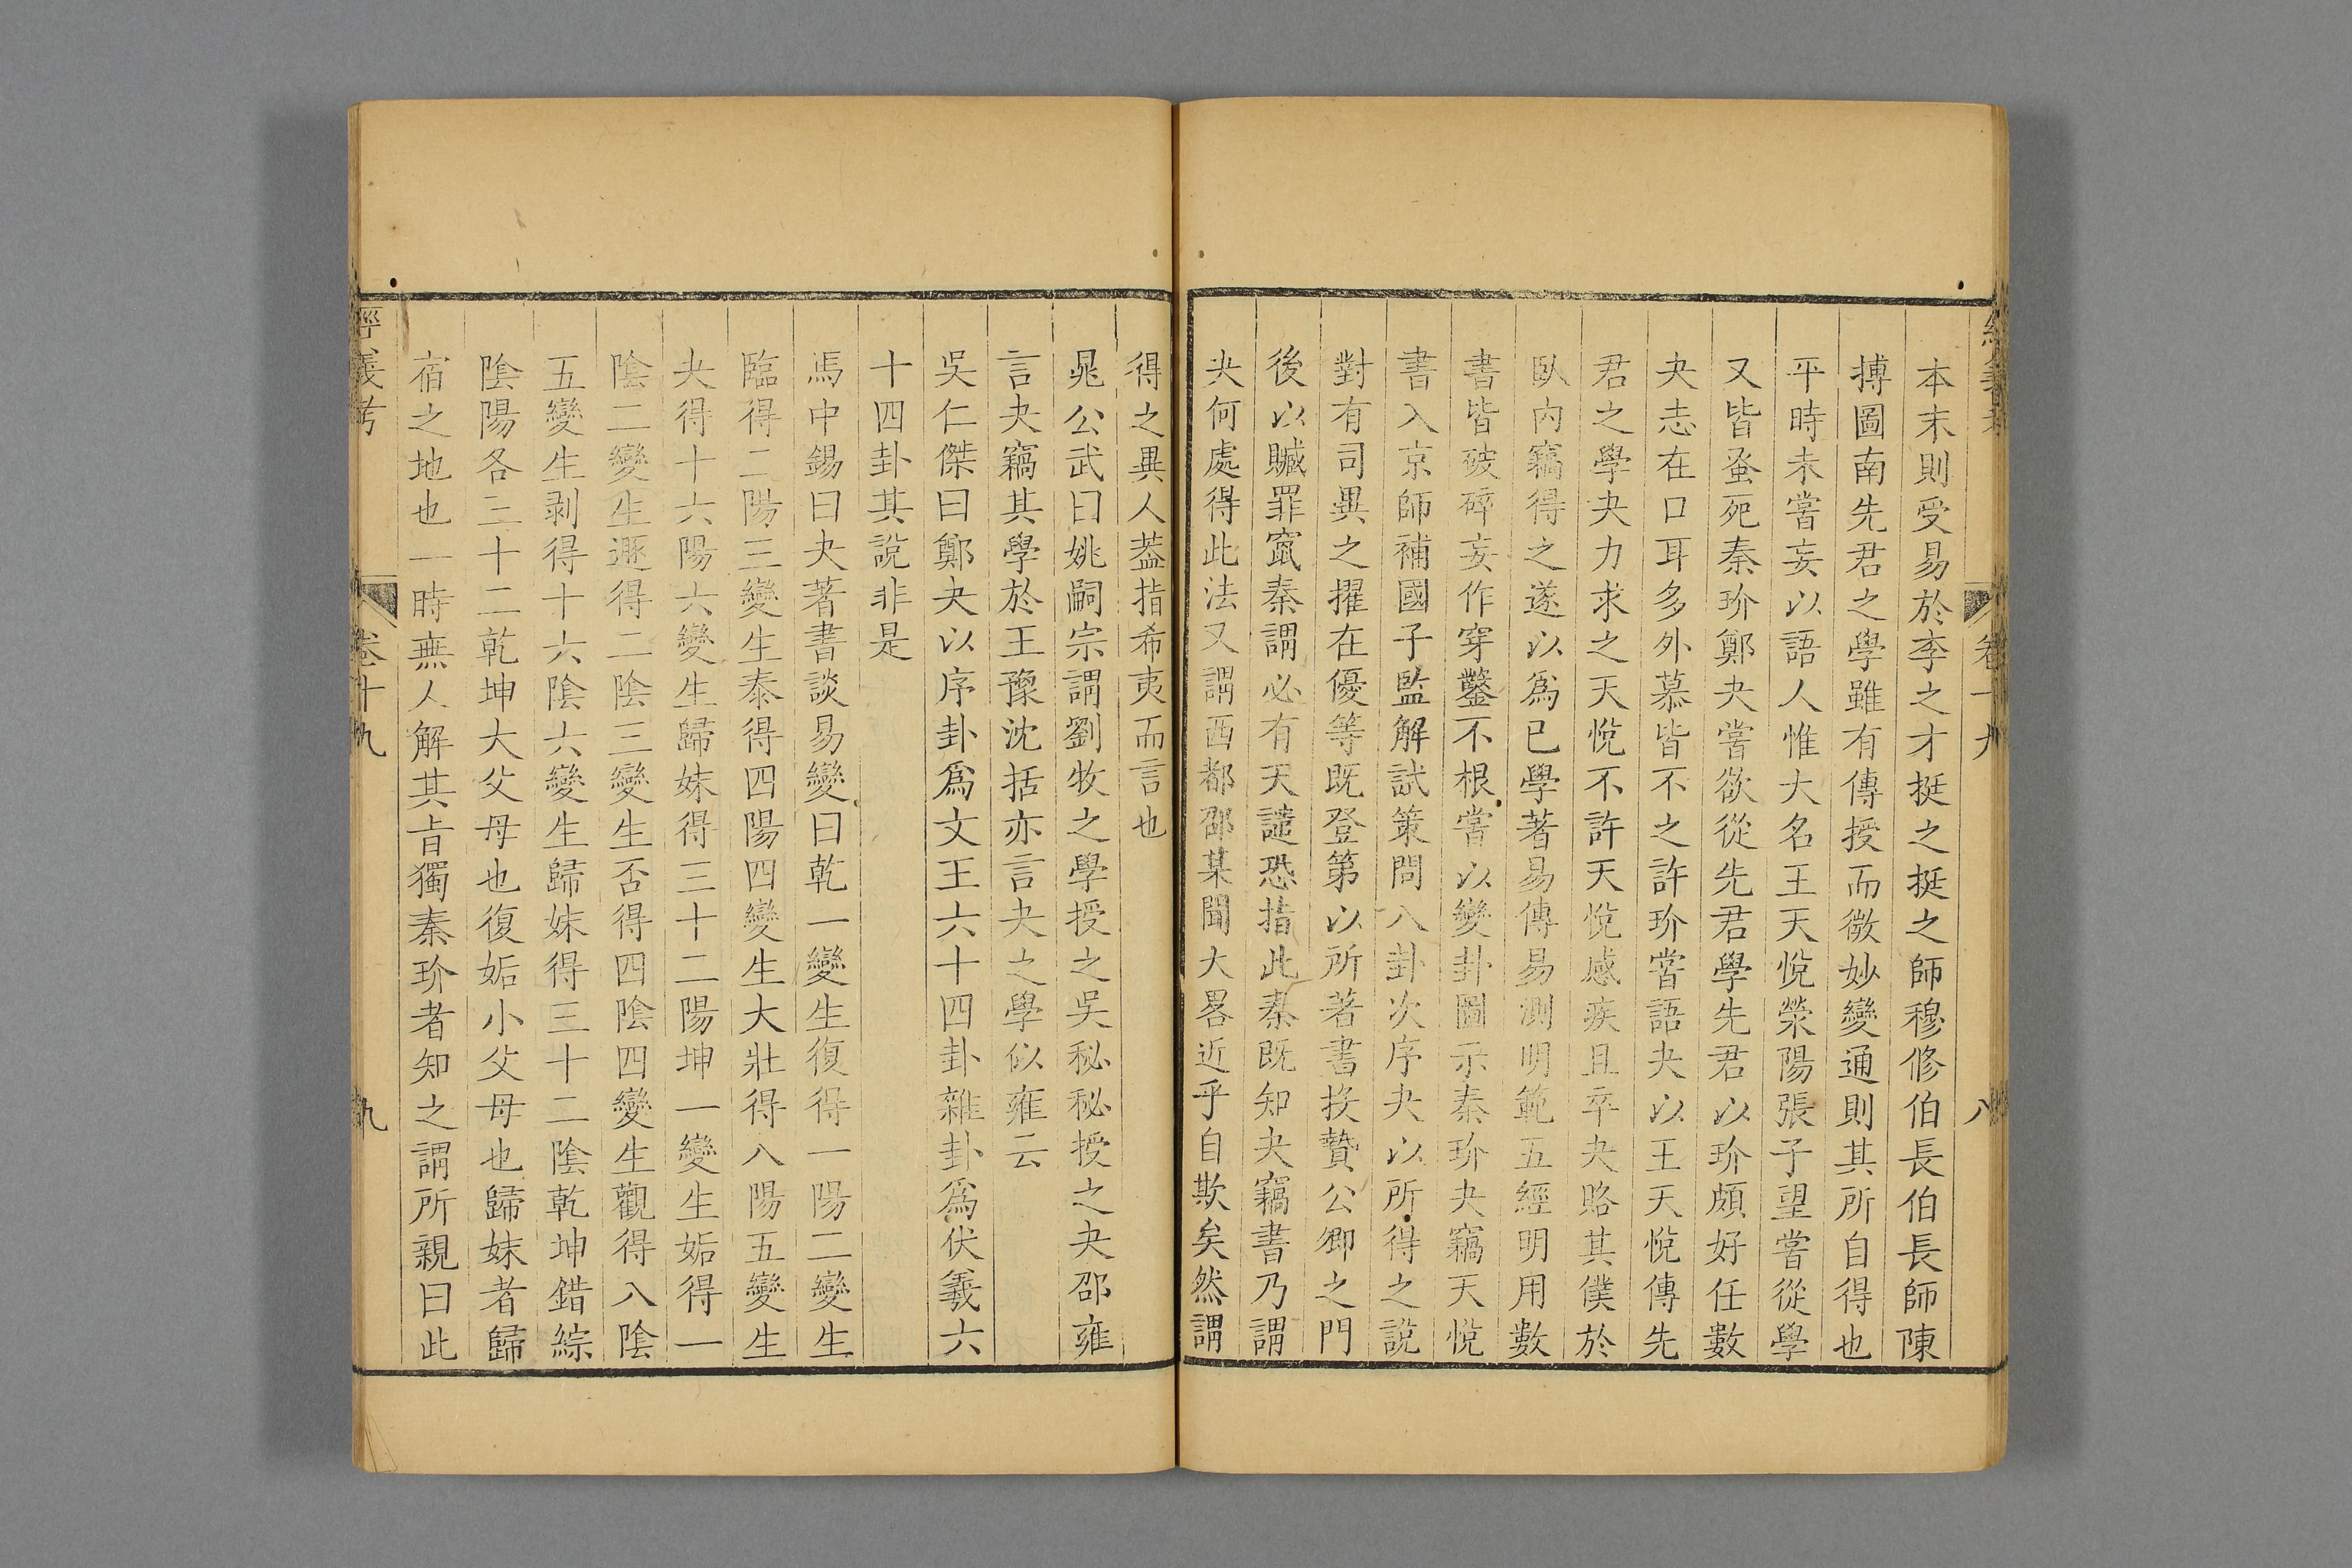 經義考 卷十九 八
本末則受易於李之才挺之挺之師穆修伯長伯長師陳
摶圖南先君之學雖有傳授而微妙變通則其所自得也
平時未嘗妄以語人惟大名王天悅滎陽張子望嘗從學
又皆蚤死秦玠鄭夬嘗欲從先君學先君以玠頗好任數
夬志在口耳多外慕皆不之許玠嘗語夬以王天悅傳先
君之學夬力求之天悅不許天悅感疾且卒夬賂其僕於
臥內竊得之遂以爲已學著易傳易測明範五經明用數
書皆破碎妄作穿鑿不根嘗以變卦圖示秦玠夬竊天悅
書入京師補國子監解試策問八卦次序夬以所得之說
對有司異之擢在優等既登第以所著書投贄公卿之門
後以贓罪竄秦謂必有天譴恐指此秦既知夬竊書乃謂
夬何處得此法又謂西都邵某聞大畧近乎自欺矣然謂
得之異人葢指希夷而言也
晁公武曰姚嗣宗謂劉牧之學授之吳秘秘授之夬邵雍
言夬竊其學於王豫沈括亦言夬之學似雍云
吳仁傑曰鄭夬以序卦爲文王六十四卦雜卦爲伏羲六
十四卦其說非是
馮中錫曰夬著書談易變曰乾一變生復得一陽二變生
臨得二陽三變生泰得四陽四變生大壯得八陽五變生
夬得十六陽六變生歸妹得三十二陽坤一變生姤得一
陰二變生遯得二陰三變生否得四陰四變生觀得八陰
五變生剥得十六陰六變生歸妹得三十二陰乾坤錯綜
陰陽各三十二乾坤大父母也復姤小父母也歸妹者歸
宿之地也一時無人解其旨獨秦玠者知之謂所親曰此
經義考 卷十九 九